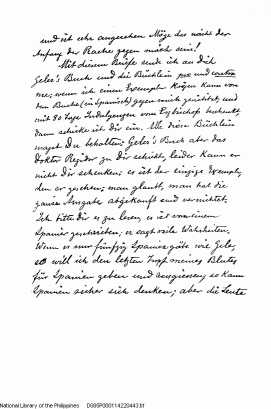 und ist sehr angesehen Möge das nicht der
Anfang der Rache gegen mich sein!
Mit diesem Briefe sende ich an Dich
Geles's Buch und die Büchlein pro und contra
me; wenn ich einen Exemplar kriegen kann von
dem Buche (in Spanisch) gegen mich und
mit 80 Tage Indulgenzen vom Erzbischof
dann schicke ich dir ein. Alle diese Büchlein
magst Du behalten; Geles's Buch aber das
Doktor Regidor zu dir schickt, leider kann er
nicht Dir schenken; es ist der einzige Exemplar,
den er gesehen; man glaubt, man hat die
ganze Ausgabe abgekauft und vernichtet.
Ich bitte Dir es zu lesen, es ist von einem
Spanier geschrieben; er sagt viele Wahrheiten.
Wenn es nur fünfzig Spanier gäbe wie Geles,
so will ich den letzten Tropf meines Blutes
für Spanien geben und ausgiessen, so kann
Spanien sicher sich denken; aber die Leute
National Library of the Philippines DG95PO0011422044